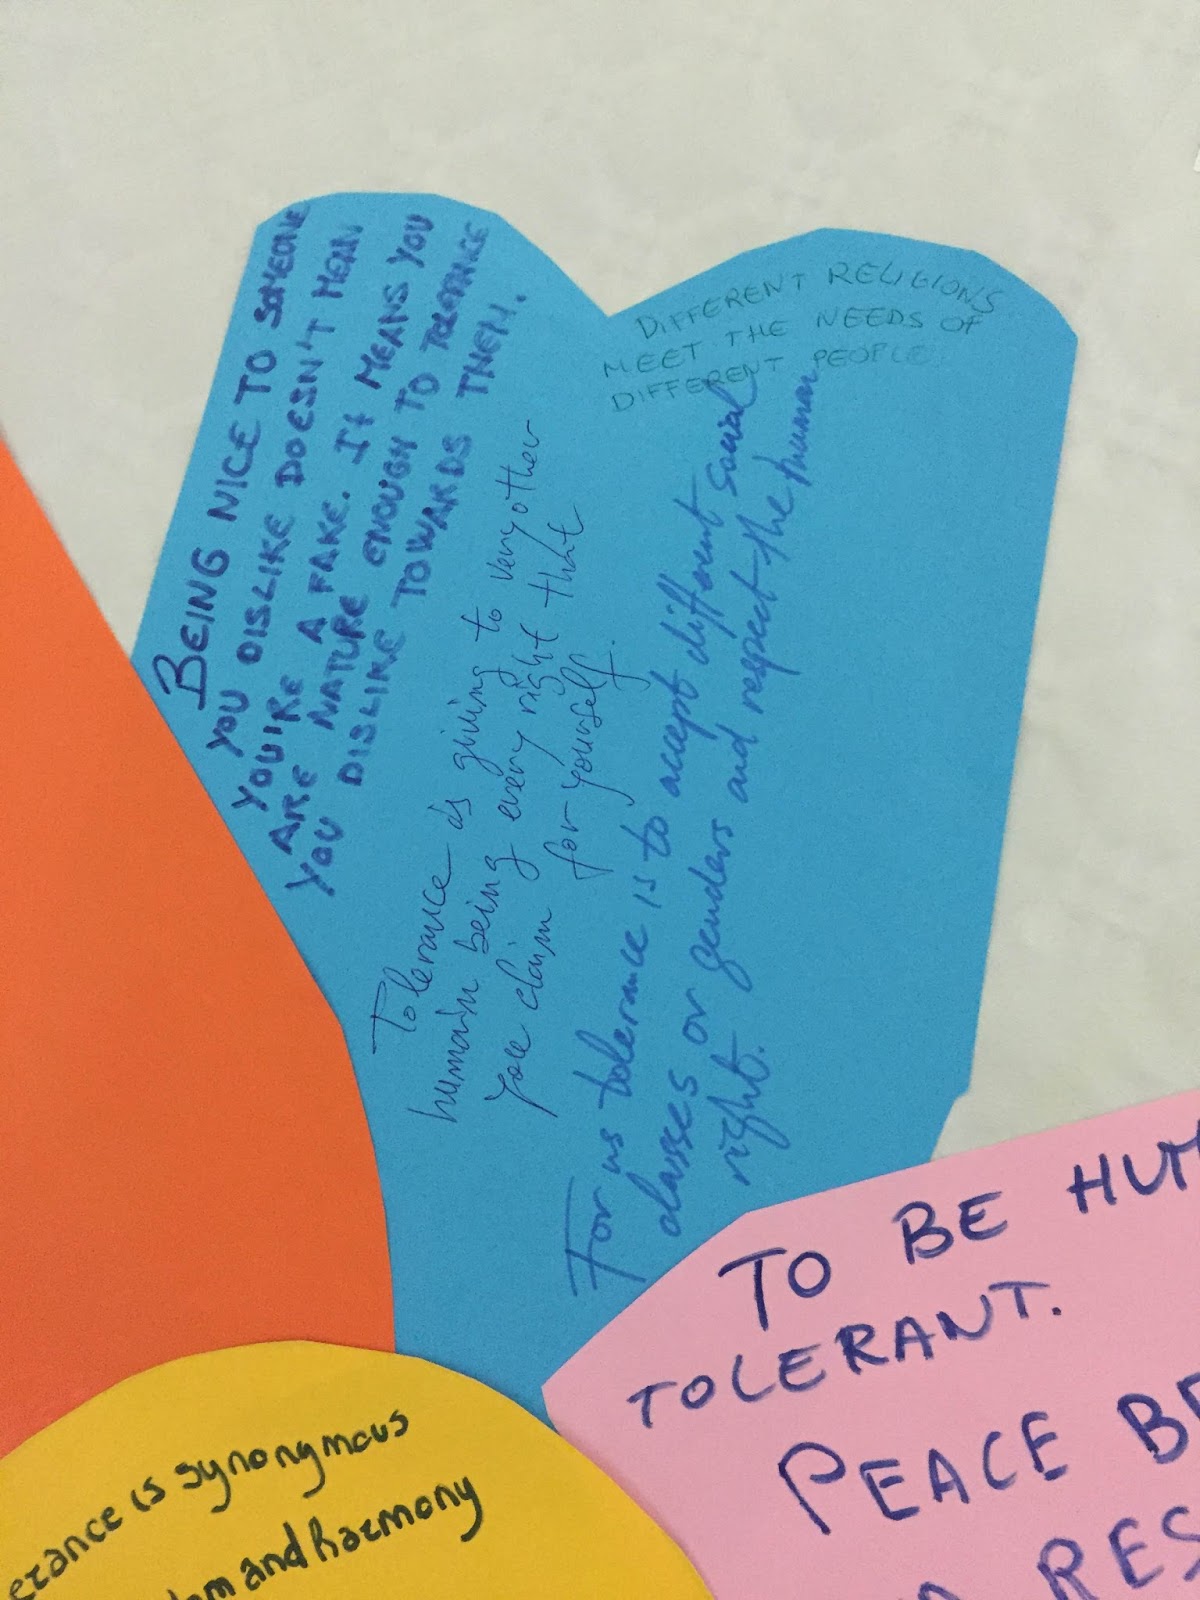 BEING NICE TO SOMEONE
YOU DISLIKE DOESN'T MEAN
YOU'RE A FAKE. It MEANS YOU
ARE NATURE ENOUGH TO TOLERANCE
YOU DISLIKE TOWARDS THEM.
DIFFERENT RELIGIONS
MEET THE NEEDS OF
DIFFERENT PEOPLE
Tolerance is giving to very other
human being every right that
you claim for yourself.
For us tolerance is to accept different social
classes or genders and respect the human
right.
TO BE
TOLERANT.
PEACE
is synonymous
and harmony